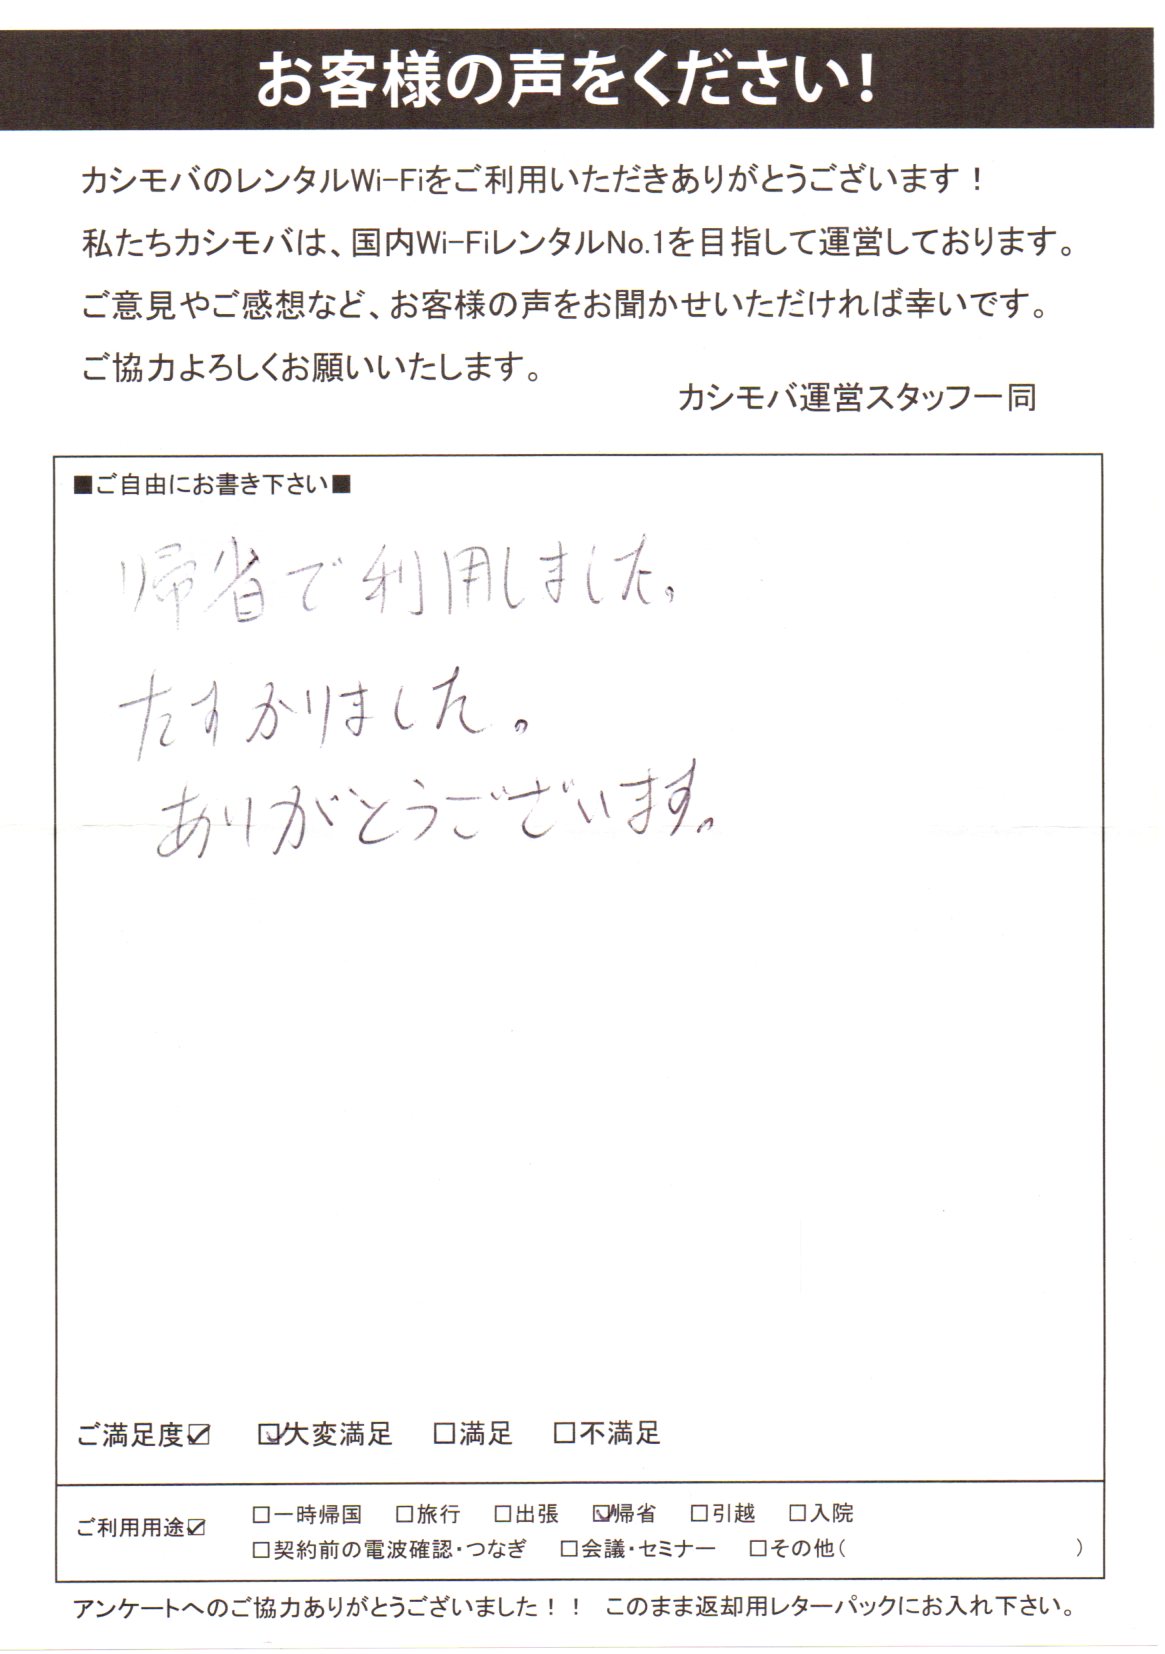 お客様の声をください!
カシモバのレンタルWi-Fiをご利用いただきありがとうございます！
私たちカシモバは、国内Wi-FiレンタルNo.1を目指して運営しております。
ご意見やご感想など、お客様の声をお聞かせいただければ幸いです。
ご協力よろしくお願いいたします。
カシモバ運営スタッフ一同
■ご自由にお書き下さい■
帰省で利用しました。
たすかりました。
ありがとうございます。
ご満足度☑ ☑大変満足 □満足 □不満足
ご利用用途☑ □一時帰国 □旅行 □出張 ☑帰省 □引越 □入院
□契約前の電波確認・つなぎ □会議・セミナー □その他( )
アンケートへのご協力ありがとうございました！！ このまま返却用レターパックにお入れ下さい。